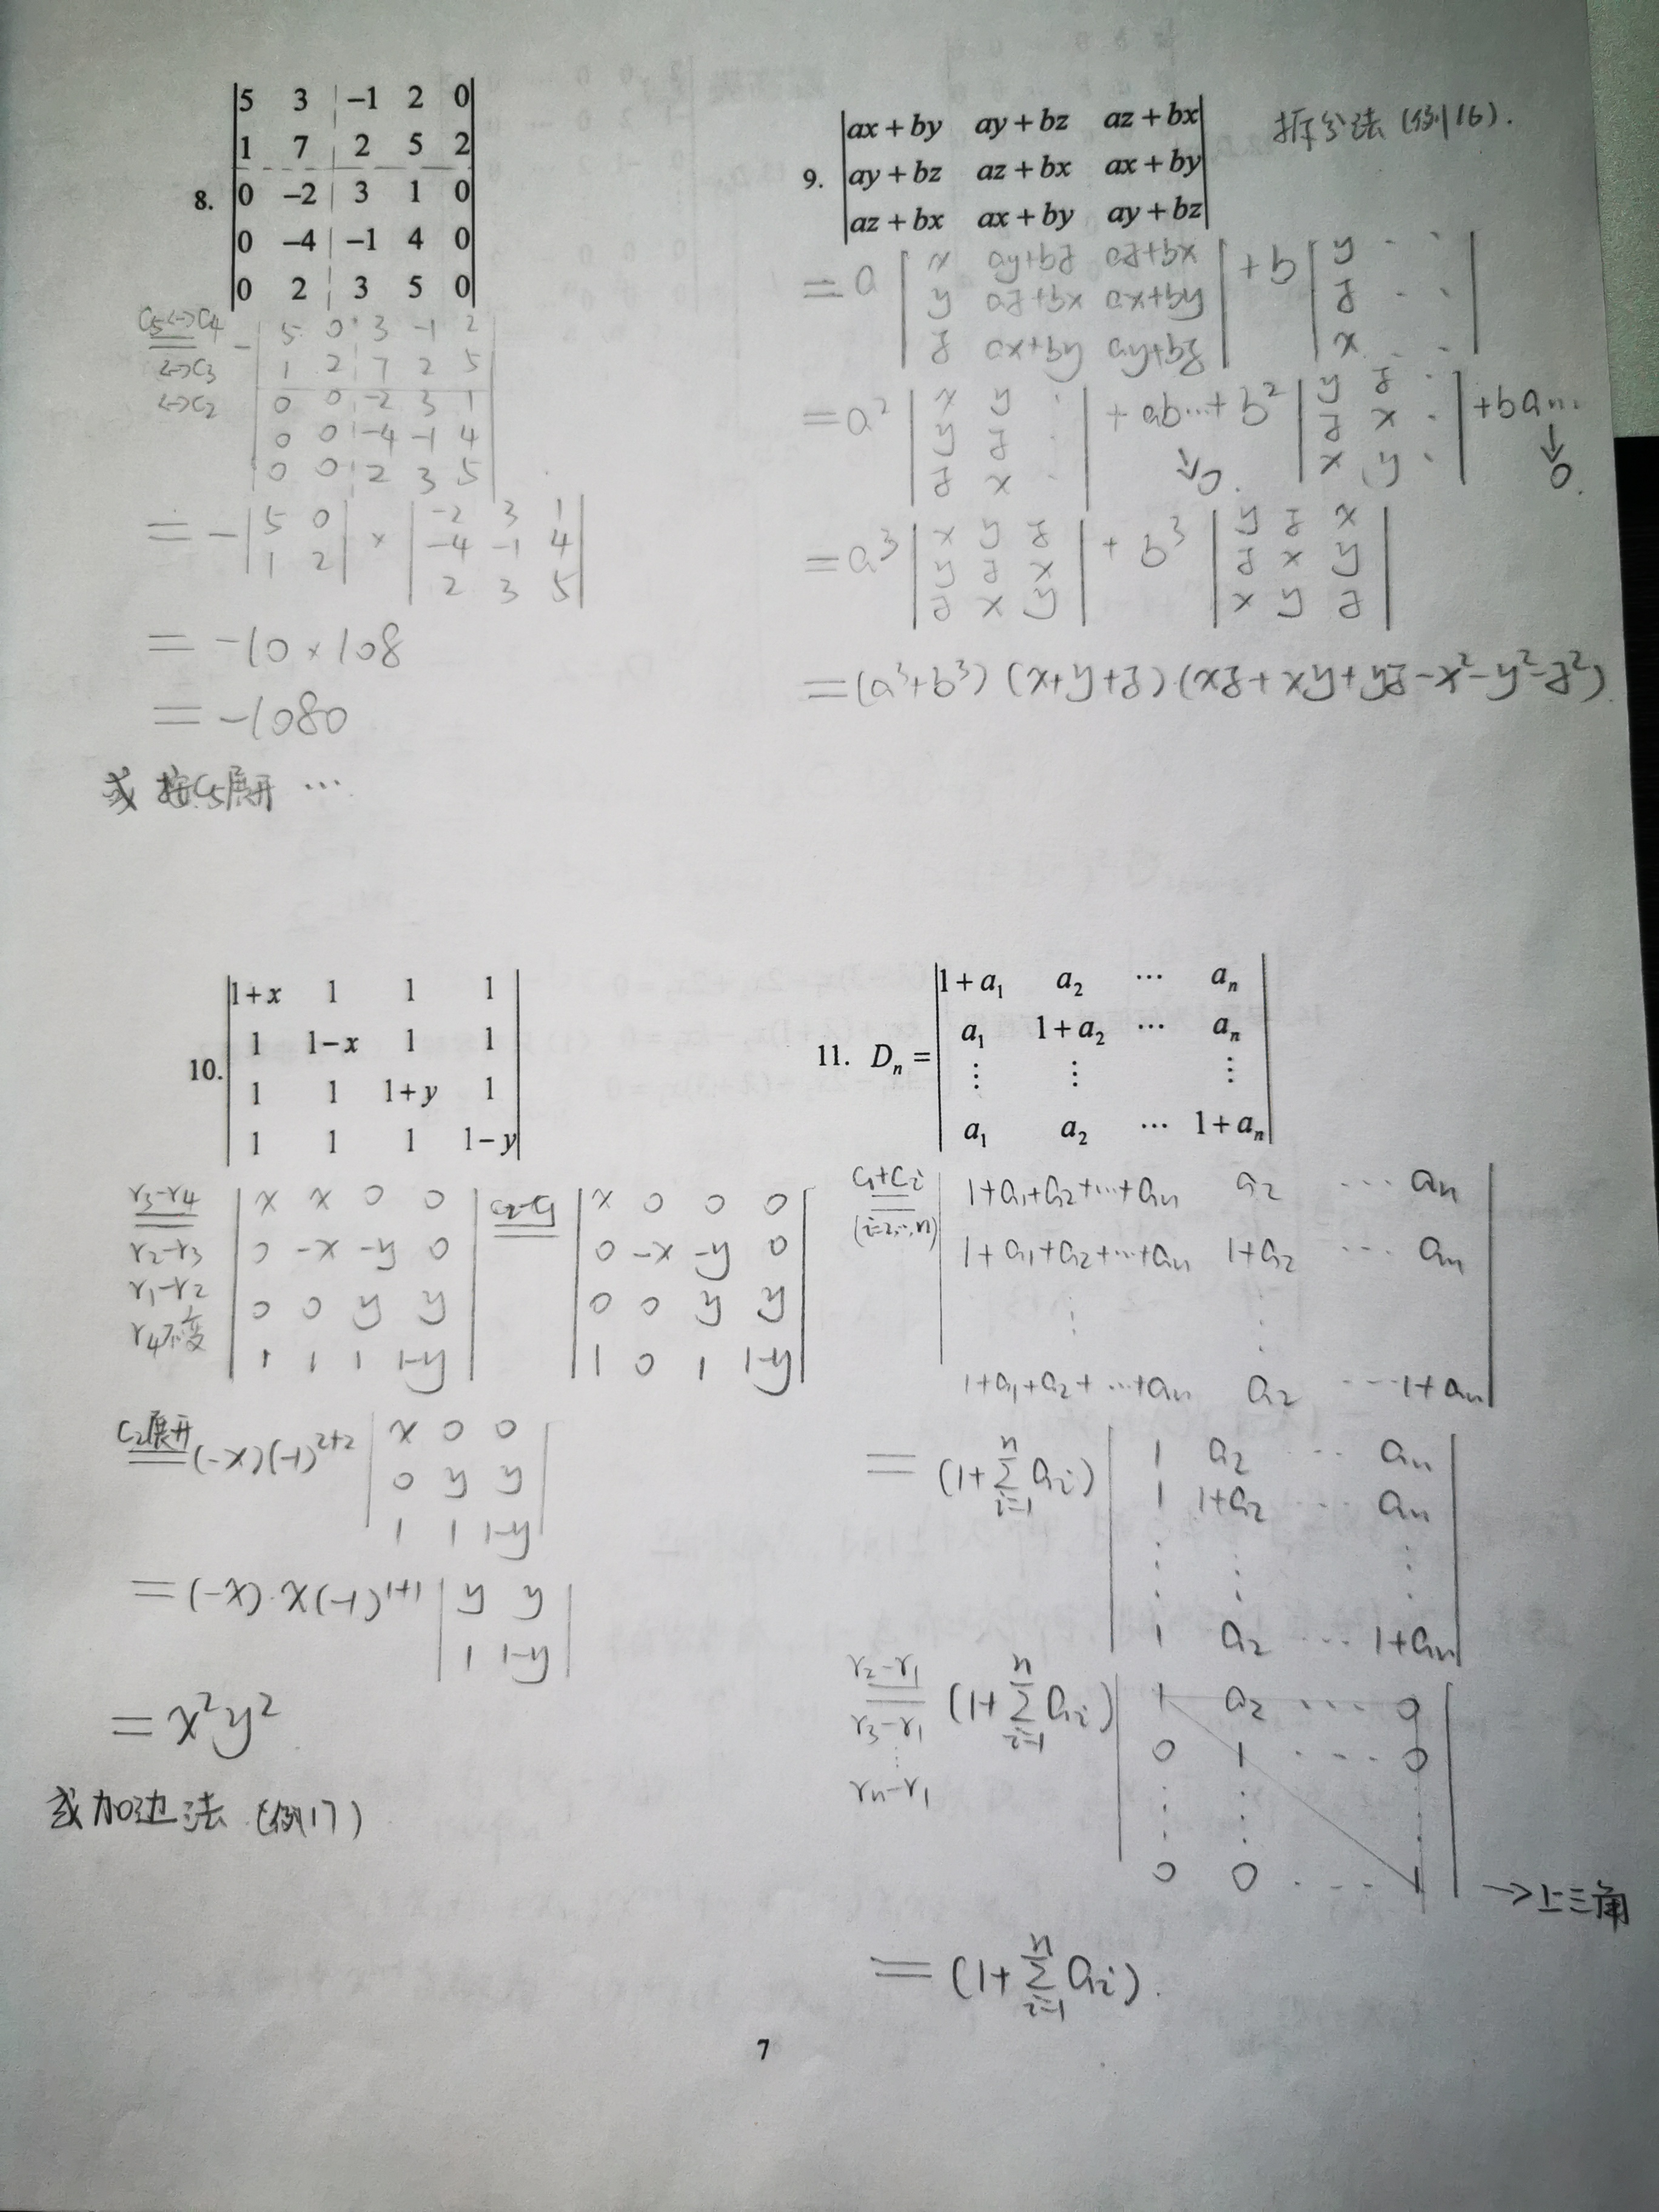 8.
5 3 -1 2 0
1 7 2 5 2
0 -2 3 1 0
0 -4 -1 4 0
0 2 3 5 0
C5↔C4
↔C3
↔C2
-
5 0 3 -1 2
1 2 7 2 5
0 0 -2 3 1
0 0 -4 -1 4
0 0 2 3 5
= - |5 0; 1 2| × |-2 3 1; -4 -1 4; 2 3 5|
= -10×108
= -1080
或 按C5展开 …
9.
ax+by ay+bz az+bx
ay+bz az+bx ax+by
az+bx ax+by ay+bz
拆分法(例16).
= a |x ay+bz az+bx; y az+bx ax+by; z ax+by ay+bz| + b |y · ·; z · ·; x · ·|
= a² |x y ·; y z ·; z x ·| + ab… + b² |y z ·; z x ·; x y ·| + ba…
↓0. ↓0.
= a³ |x y z; y z x; z x y| + b³ |y z x; z x y; x y z|
= (a³+b³)(x+y+z)(xz+xy+yz-x²-y²-z²).
10.
1+x 1 1 1
1 1-x 1 1
1 1 1+y 1
1 1 1 1-y
r3-r4
r2-r3
r1-r2
r4不变
x x 0 0
0 -x -y 0
0 0 y y
1 1 1 1-y
c2-c1
x 0 0 0
0 -x -y 0
0 0 y y
1 0 1 1-y
C2展开 (-x)(-1)²⁺² |x 0 0; 0 y y; 1 1 1-y|
= (-x)·x(-1)¹⁺¹ |y y; 1 1-y|
= x²y²
或加边法(例17)
11. Dn =
1+a₁ a₂ … aₙ
a₁ 1+a₂ … aₙ
⋮ ⋮ ⋮
a₁ a₂ … 1+aₙ
C1+Ci
(i=2,…,n)
1+a₁+a₂+…+aₙ a₂ … aₙ
1+a₁+a₂+…+aₙ 1+a₂ … aₙ
⋮ ⋮
1+a₁+a₂+…+aₙ a₂ … 1+aₙ
= (1+∑ⁿᵢ₌₁ aᵢ)
1 a₂ … aₙ
1 1+a₂ … aₙ
⋮ ⋮ ⋮
1 a₂ … 1+aₙ
r2-r1
r3-r1
⋮
rn-r1
(1+∑ⁿᵢ₌₁ aᵢ)
1 a₂ … 0
0 1 … 0
⋮ ⋮ ⋮
0 0 … 1
→上三角
= (1+∑ⁿᵢ₌₁ aᵢ).
7